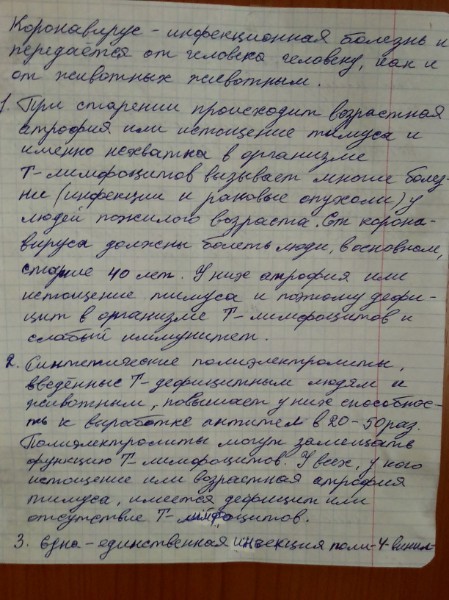 Коронавирус - инфекционная болезнь и
передаётся от человека человеку, как и
от животных животным.
1. При старении происходит возрастная
атрофия или истощение тимуса и
именно нехватка в организме
Т-лимфоцитов вызывает многие болез-
ни (инфекции и раковые опухоли) у
людей пожилого возраста. От корона-
вируса должны болеть люди, в основном,
старше 40 лет. У них атрофия или
истощение тимуса и поэтому дефи-
цит в организме Т-лимфоцитов и
слабый иммунитет.
2. Синтетические полиэлектролиты,
введённые Т-дефицитным людям и
животным, повышает у них способнос-
ть к выработке антител в 20-50 раз.
Полиэлектролиты могут замещать
функцию Т-лимфоцитов. У всех, у кого
истощение или возрастная атрофия
тимуса, имеется дефицит или
отсутствие Т-лимфоцитов.
3. Одна-единственная инъекция поли-4-винил-